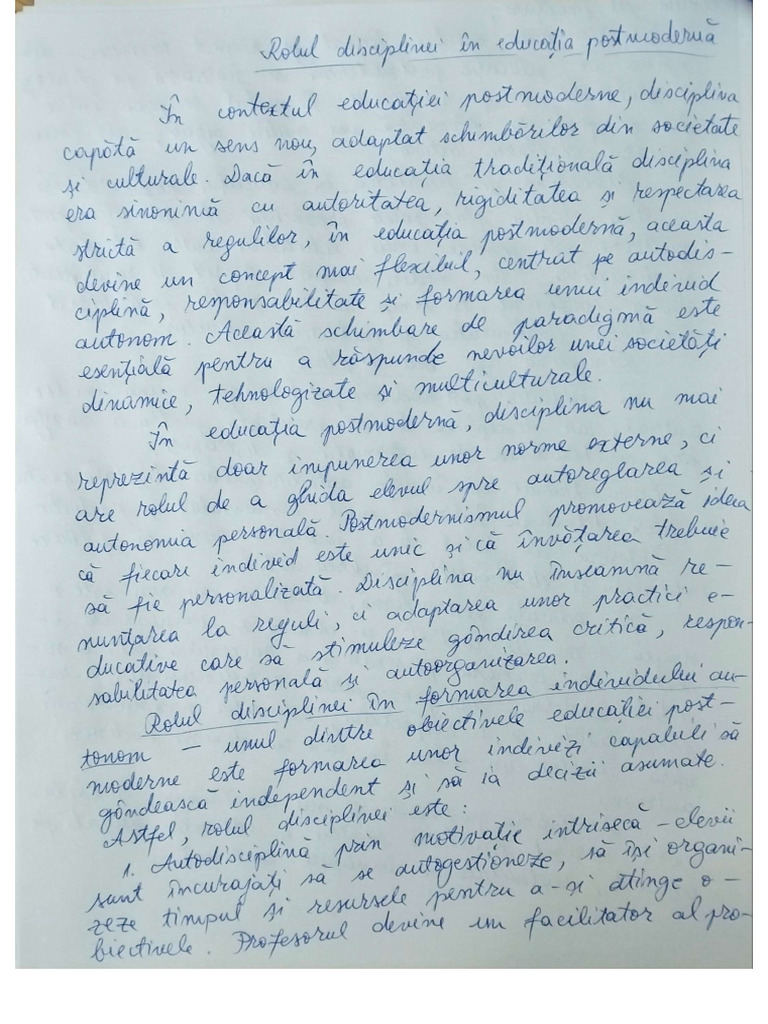 Rolul disciplinei în educația postmodernă
În contextul educației postmoderne, disciplina
capătă un sens nou, adaptat schimbărilor din societate
și culturale. Dacă în educația tradițională disciplina
era sinonimă cu autoritatea, rigiditatea și respectarea
strictă a regulilor, în educația postmodernă, aceasta
devine un concept mai flexibil, centrat pe autodis-
ciplină, responsabilitate și formarea unui individ
autonom. Această schimbare de paradigmă este
esențială pentru a răspunde nevoilor unei societăți
dinamice, tehnologizate și multiculturale.
În educația postmodernă, disciplina nu mai
reprezintă doar impunerea unor norme externe, ci
are rolul de a ghida elevul spre autoreglarea și
autonomia personală. Postmodernismul promovează ideea
că fiecare individ este unic și că învățarea trebuie
să fie personalizată. Disciplina nu înseamnă re-
nunțarea la reguli, ci adaptarea unor practici e-
ducative care să stimuleze gândirea critică, respon-
sabilitatea personală și autoorganizarea.
Rolul disciplinei în formarea individului au-
tonom – unul dintre obiectivele educației post-
moderne este formarea unor indivizi capabili să
gândească independent și să ia decizii asumate.
Astfel, rolul disciplinei este:
1. Autodisciplină prin motivație intrisecă – elevii
sunt încurajați să se autogestioneze, să își organi-
zeze timpul și resursele pentru a-și atinge o-
biectivele. Profesorul devine un facilitator al pro-